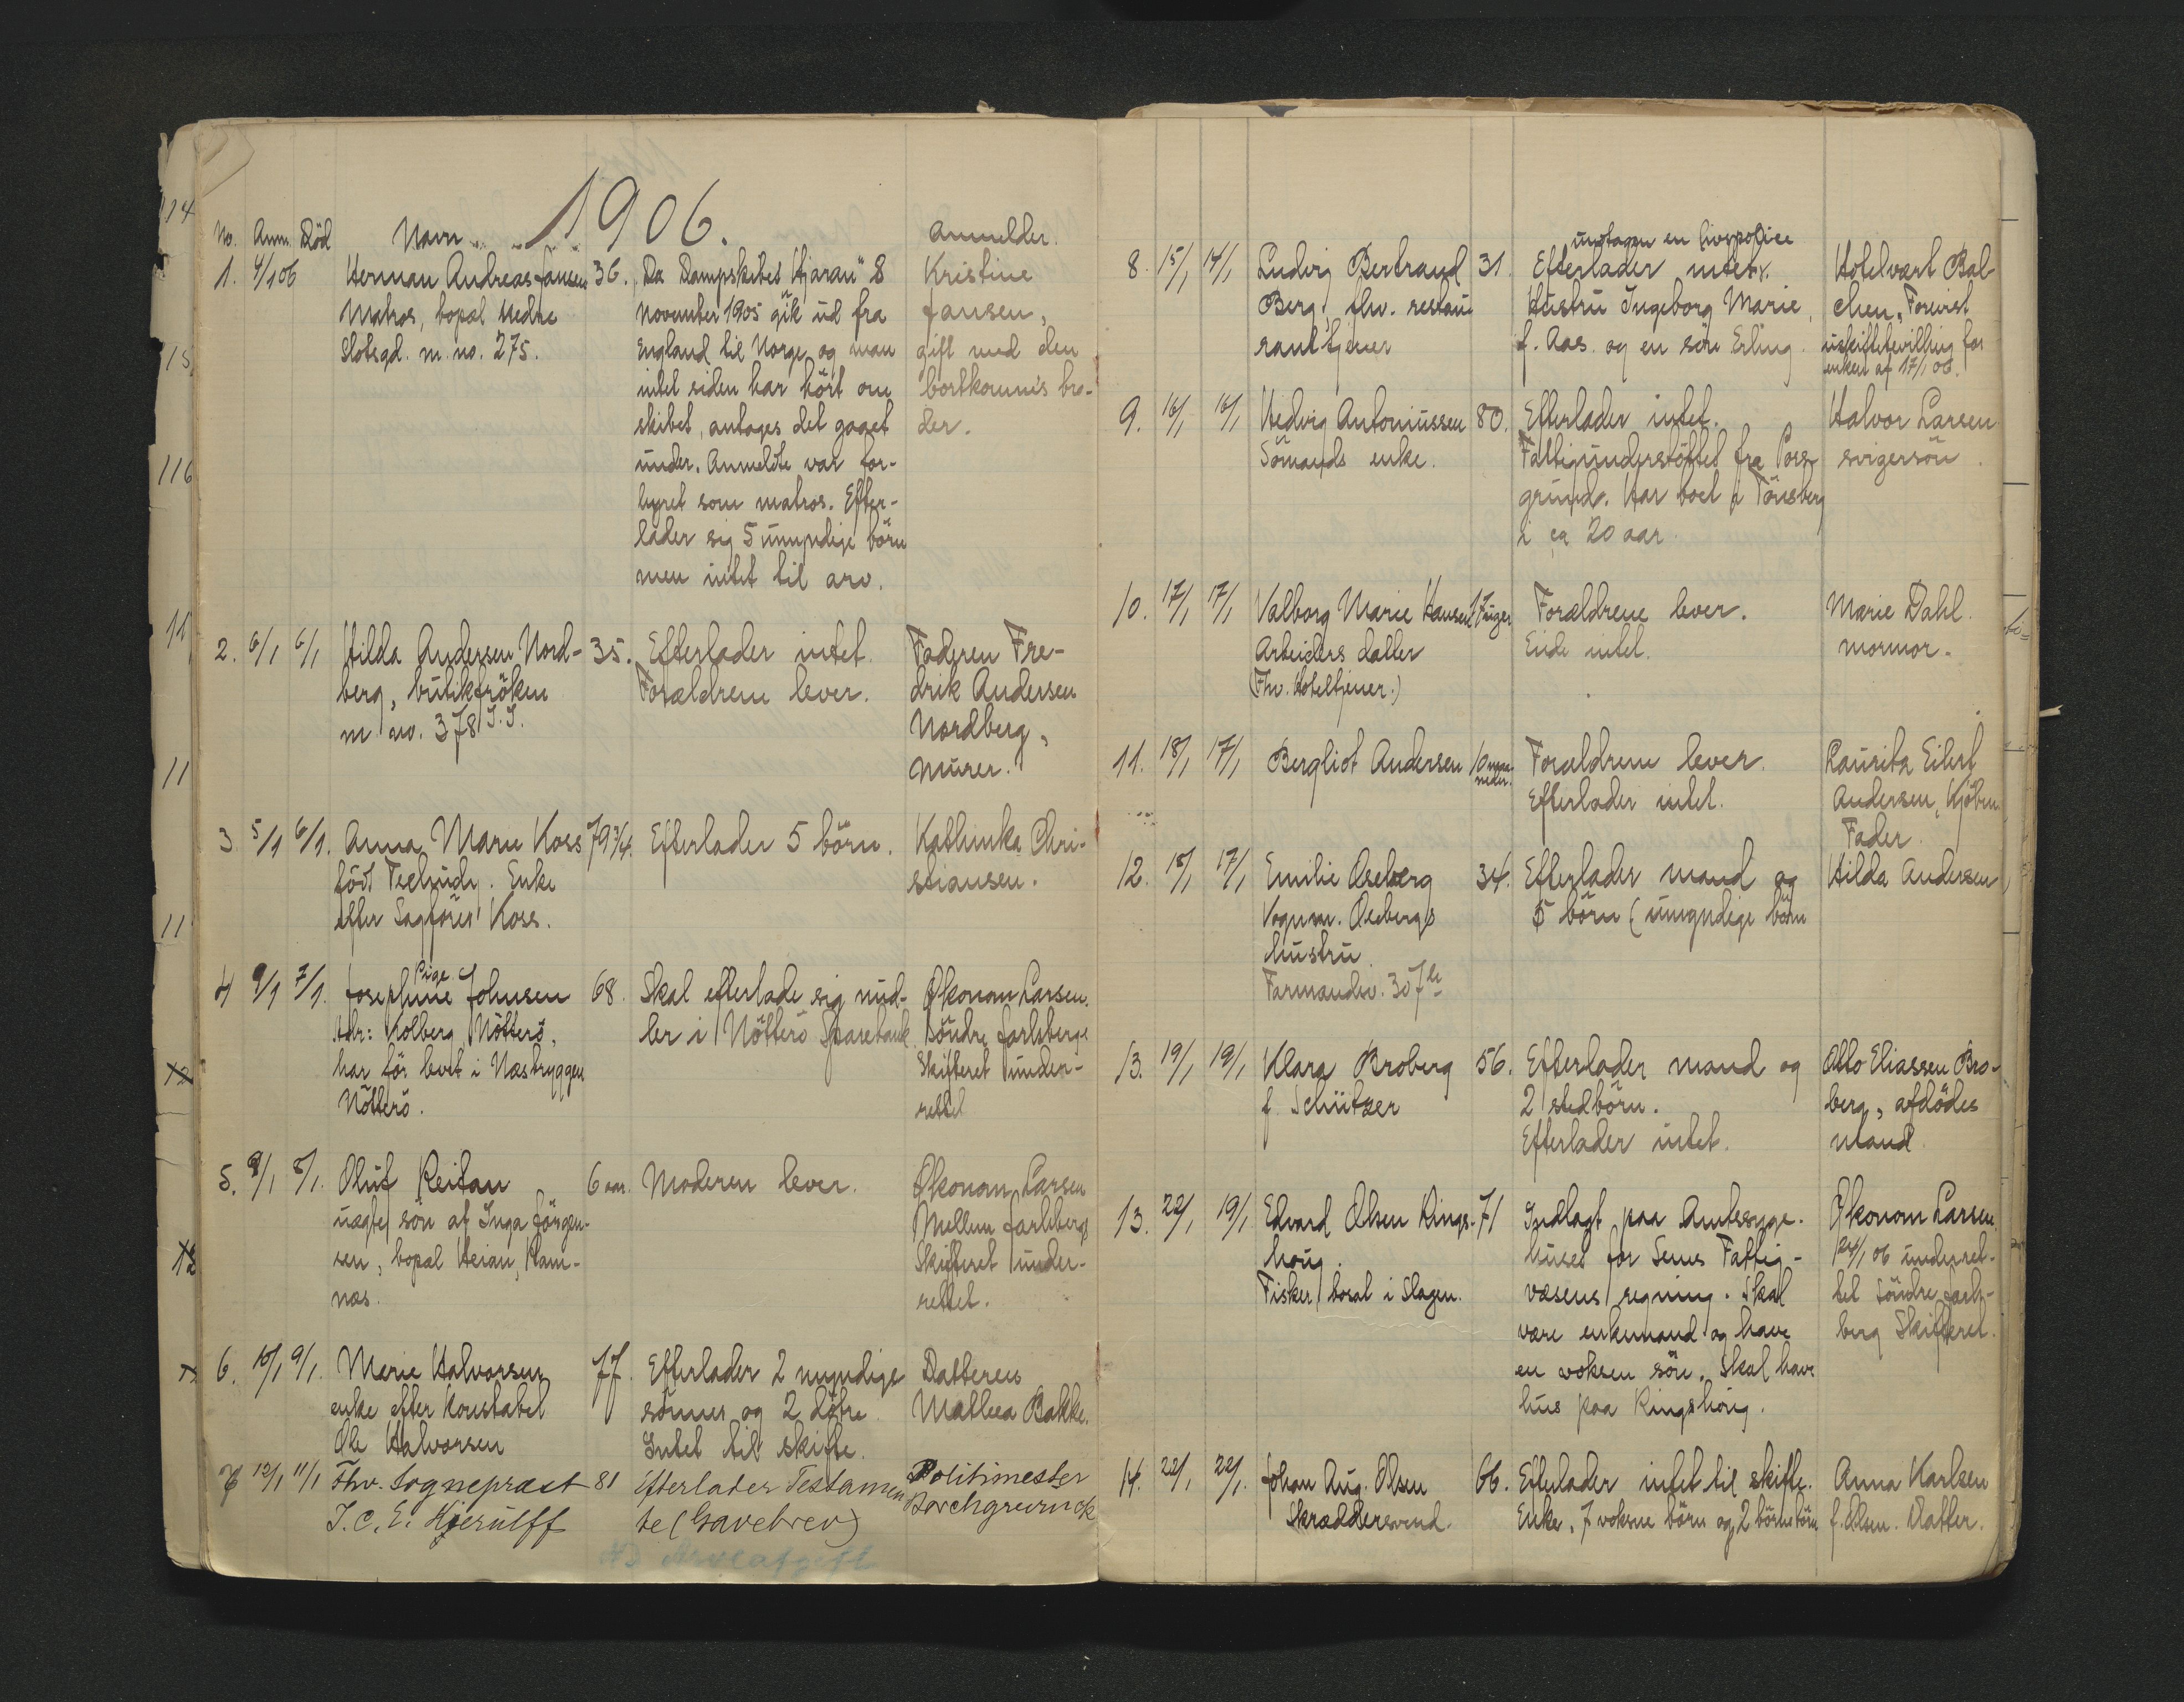 1906.
No. Anm. Död Navn Anmelder.
1. 4/1 06 Herman Andreas Jansen 36. Da Dampskibet "Hjaran" 8 Kristine
Matros, bopæl Nedre November 1905 gik ud fra Jansen,
Slotsgd. m. no. 275. England til Norge og man gift med den
intet siden har hört om bortkomnes bro-
skibet, antages det gaaet der.
under. Anmeldte var for-
hyret som matros. Efter-
lader sig 5 umyndige börn
men intet til arv.
2. 6/1 6/1 Hilda Andersen Nord- 35. Efterlader intet. Faderen Fre-
berg, butikfröken Forældrene lever. drik Andersen
m. no. 378 Nordberg,
Murer.
3 5/1 6/1. Anna Marie Koss 79 3/4. Efterlader 5 börn. Kathinka Chri-
födt . Enke stiansen.
efter Sagförer Koss.
4 9/1 7/1. Pige Josephine Johnsen 68. Skal efterlade sig mid- Økonom Larsen.
Adr: Kolberg, Nötterö, ler i Nötterö Sparebank. Söndre Jarlsbergs
har för levet i Næsbryggen Skifteret under-
Nötterö. rettet
5. 9/1 8/1. Oluf Reitan 6 aar. Moderen lever. Økonom Larsen
uægte sön af Inga Jörgen- Mellem Jarlsbergs
sen, bopæl Heian, Ram- Skifteret under-
næs. rettet.
6. 10/1 9/1. Marie Halvorsen 77. Efterlader 2 myndige Datteren
enke efter Konstabel sönner og 2 dötre. Mathea Bakke.
Ole Halvorsen Intet til skifte.
7 12/1 11/1 Fhv. Sognepræst 81 Efterlader Testamen Politimester
J. C. E. Hjerulff te (Gavebrev) Borchgrevinck
NB Arveafgift
8. 15/1 14/1 Ludvig Bertrand 31. Efterlader intet undtagen en livspolice Hotelvært Bal
Berg, fhv. restau Hustru Ingeborg Marie, chen, Forevist
ranttjener f. Aas. og en sön Erling. uskiftetbevilling for
enken af 17/1 06.
9. 16/1 16/1 Hedvig Antoniussen 80. Efterlader intet. Halvor Larsen
Sömands enke. Fattigunderstöttet fra Pors svigersön.
grund. Har boet i Tönsberg
i ca 20 aar.
10. 17/1 17/1 Valborg Marie Hansen 17 uger Forældrene lever. Marie Dahl.
Arbeiders datter Eide intet. mormor.
(Fhv. Hoteltjener.)
11. 18/1 17/1 Bergliot Andersen 10 maa- neder. Forældrene lever. Lauritz Eilert
Efterlader intet. Andersen, Kjöbm.
Fader.
12. 18/1 17/1 Emilie Oseberg 34. Efterlader mand og Hilda Andersen
Vognm. Osebergs 5 börn (umyndige börn
hustru.
Farmandsv. 307 b
13. 19/1 19/1 Klara Broberg 56. Efterlader mand og Otto Eliassen Bro-
f. Schützer 2 stedbörn. berg, afdödes
Efterlader intet. mand.
13. 22/1 19/1 Edvard Olsen Rings- 71 Indlagt paa Amtssyge- Økonom Larsen.
houg. huset for Sems Fattig- 24/1 06 underret-
Fisker, bosat i Slagen. væsens regning. Skal tet Söndre Jarls-
være enkemand og have berg Skifteret.
en voksen sön. Skal have
hus paa Ringshoug.
14. 22/1 22/1. Johan Aug. Olsen 66. Efterlader intet til skifte. Anna Karlsen
Skræddersvend. Enke, 7 voksne börn og 2 börnebörn f. Olsen. Datter.